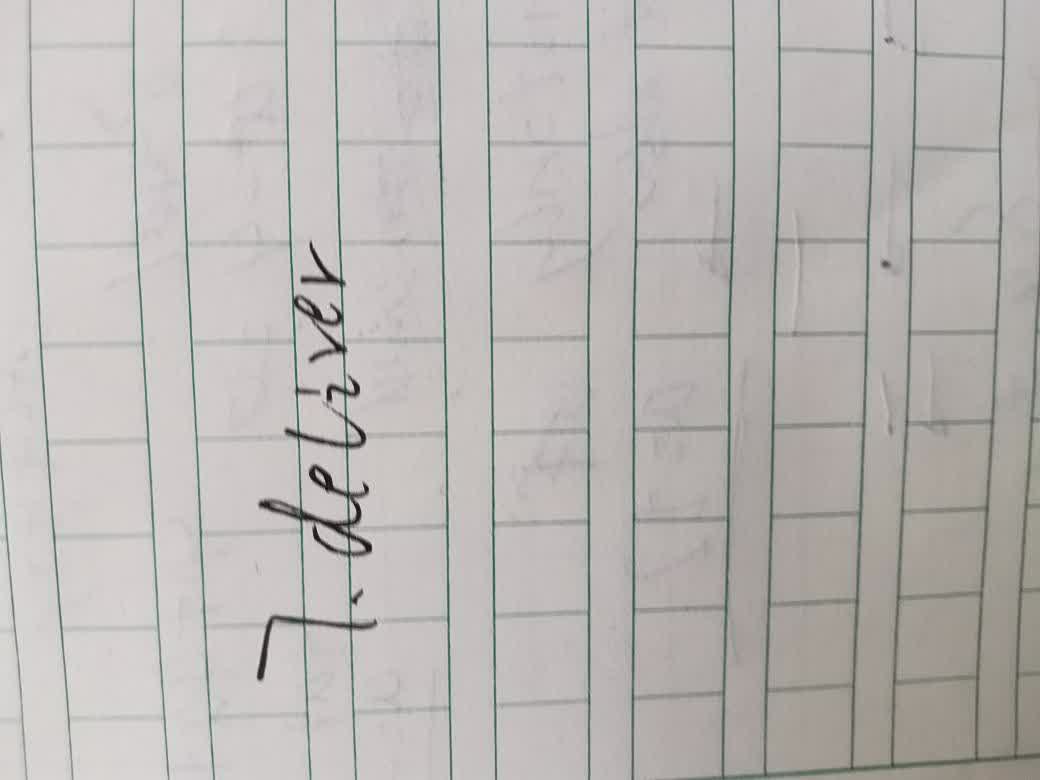 7. deliver